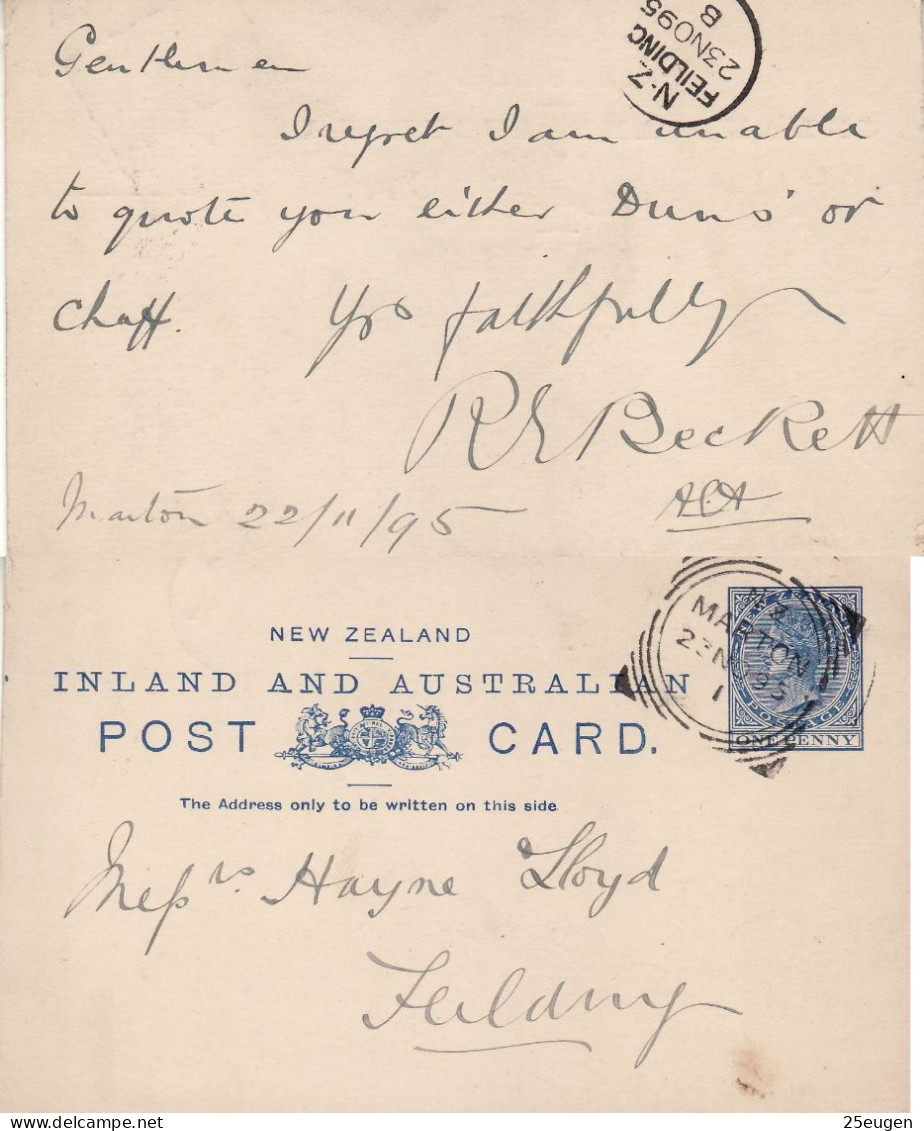 N.Z
FEILDING
23NO95
B
Gentlemen
I regret I am unable
to quote you either Duns' or
chaff. Yrs faithfully
R E Beckett
Marton 22/11/95
N.Z
MARTON
23 N 95
1
NEW ZEALAND
POSTAGE
ONE PENNY
NEW ZEALAND
INLAND AND AUSTRALIAN
POST CARD.
The Address only to be written on this side
Messrs Hayne Lloyd
Feilding
25eugen